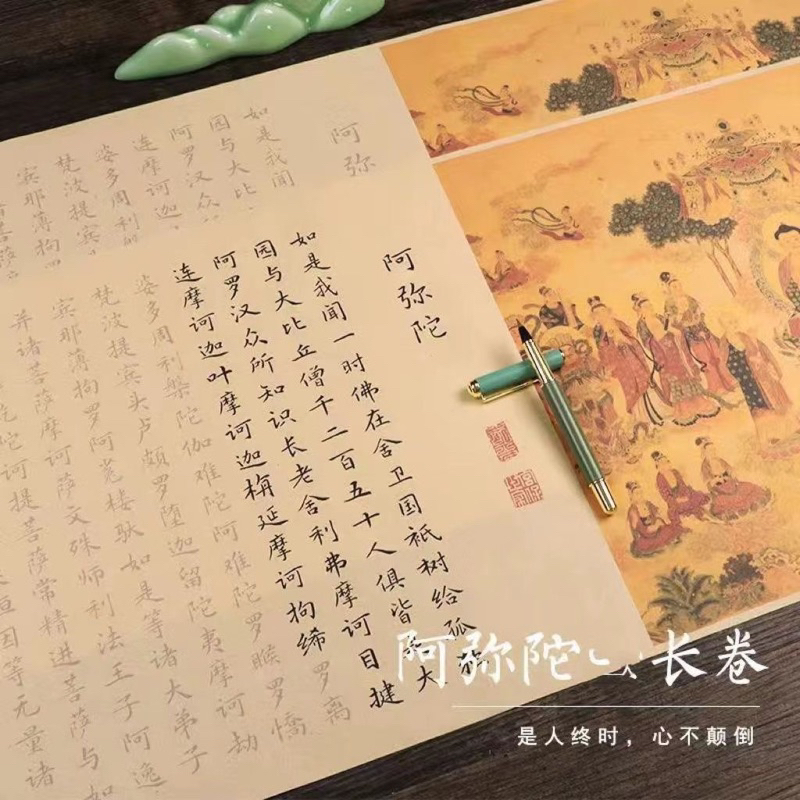 阿弥
如是我闻
园与大比
阿罗汉众
连摩诃迦
婆多周利
梵波提宾
宾那薄拘
菩萨
阿弥陀
如是我闻一时佛在舍卫国祇树给孤
园与大比丘僧千二百五十人俱皆是大
阿罗汉众所知识长老舍利弗摩诃目揵
连摩诃迦叶摩诃迦栴延摩诃拘絺罗离
婆多周利槃陀伽难陀阿难陀罗睺罗憍
梵波提宾头卢颇罗堕迦留陀夷摩诃劫
宾那薄拘罗阿㝹楼驮如是等诸大弟子
并诸菩萨摩诃萨文殊师利法王子阿逸
陀诃提菩萨常精进菩萨与如
桓因等无量诸
阿弥陀 长卷
是人终时，心不颠倒